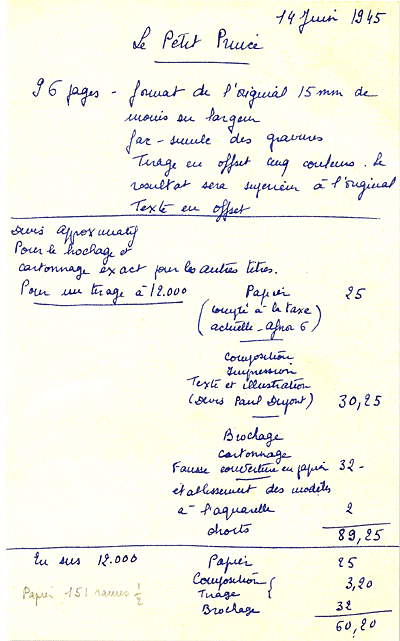 14 Juin 1945
Le Petit Prince
96 pages - format de l'original 15 mm de
moins en largeur
fac-simile des gravures
Tirage en offset cinq couleurs. Le
resultat sera superieur à l'original
Texte en offset
Devis Approximatif
Pour le brochage et
cartonnage exact pour les autres titres.
Pour un tirage à 12.000
Papier 25
(compté à la taxe
actuelle - Afnor 6)
Composition
Impression
Texte et illustration
(Devis Paul Dupont) 30,25
Brochage
cartonnage
Fausse couverture en papier 32 -
etablissement des modèles
à l'aquarelle 2
droits 89,25
En sus 12.000 Papier 25
Composition
Tirage 3,20
Papier 151 rames ½
Brochage 32
60,20